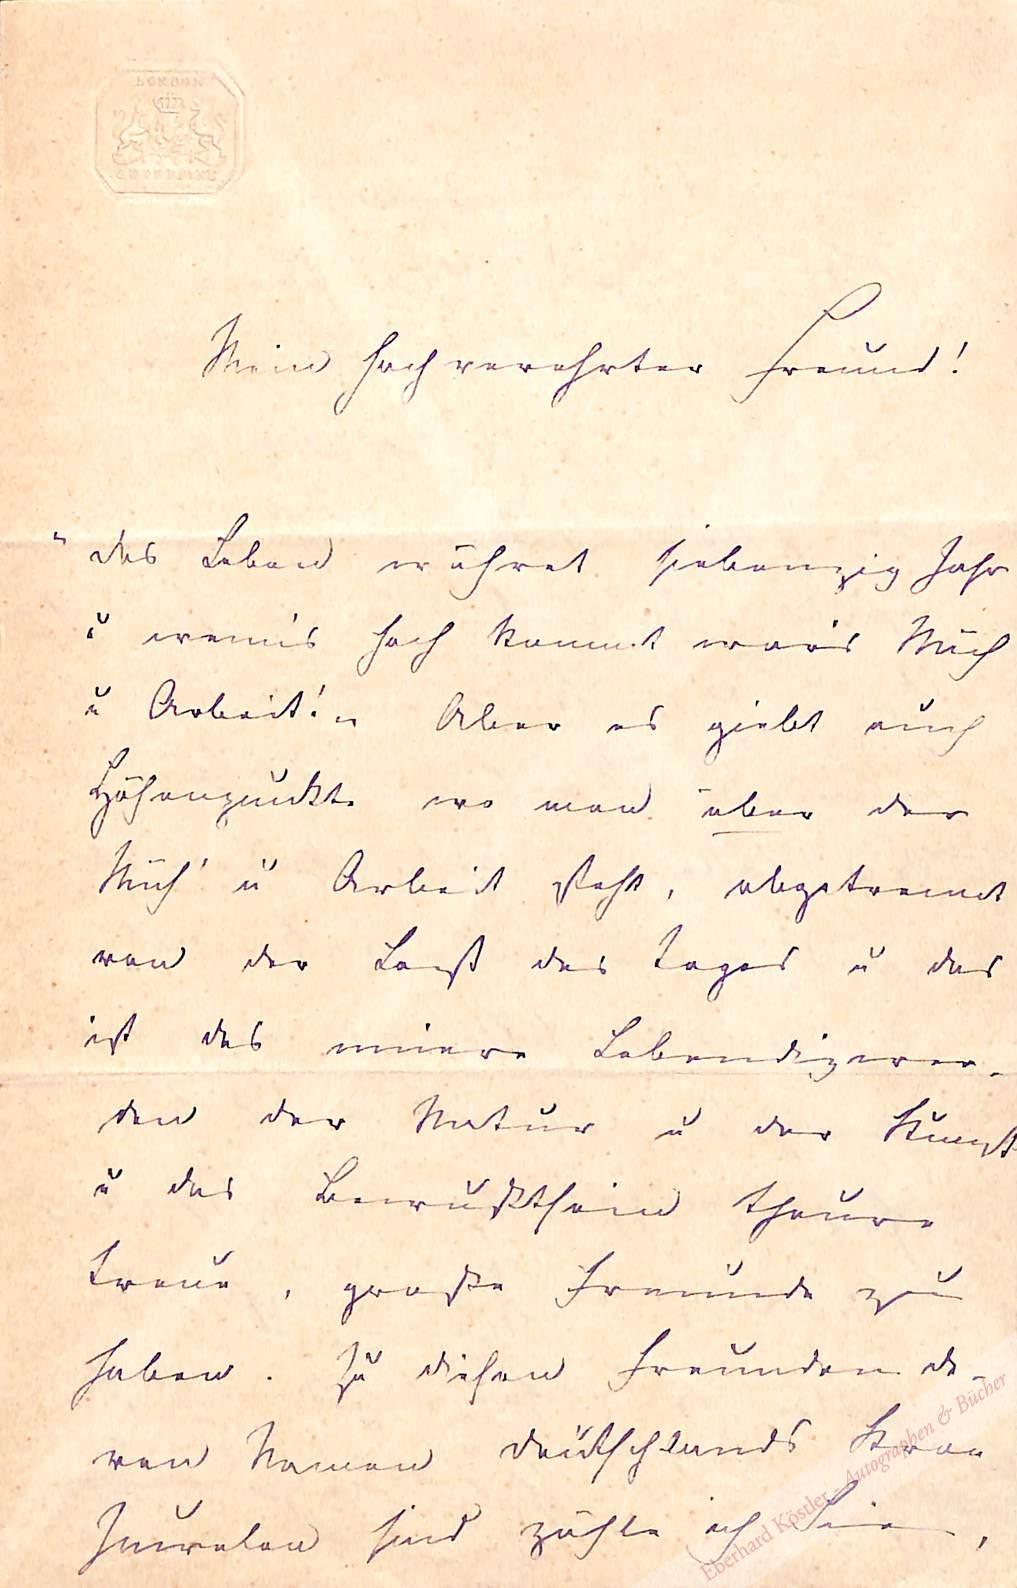 LONDON
Mein hochverehrter Freund!
"Das Leben währet siebenzig Jahr
u wenn's hoch kommt war's Müh
u Arbeit!" Aber es giebt auch
Höhenpunkte wo man über der
Müh' u Arbeit steht, abgetrennt
von der Last des Tages u das
ist das innere Lebendigwer-
den der Natur u der Kunst
u das Bewußtsein theure
treue, große Freunde zu
haben. Zu diesen Freunden de-
ren Namen Deutschlands Kron
Juwelen sind zähle ich Sie,
Eberhard Köstler - Autographen & Bücher